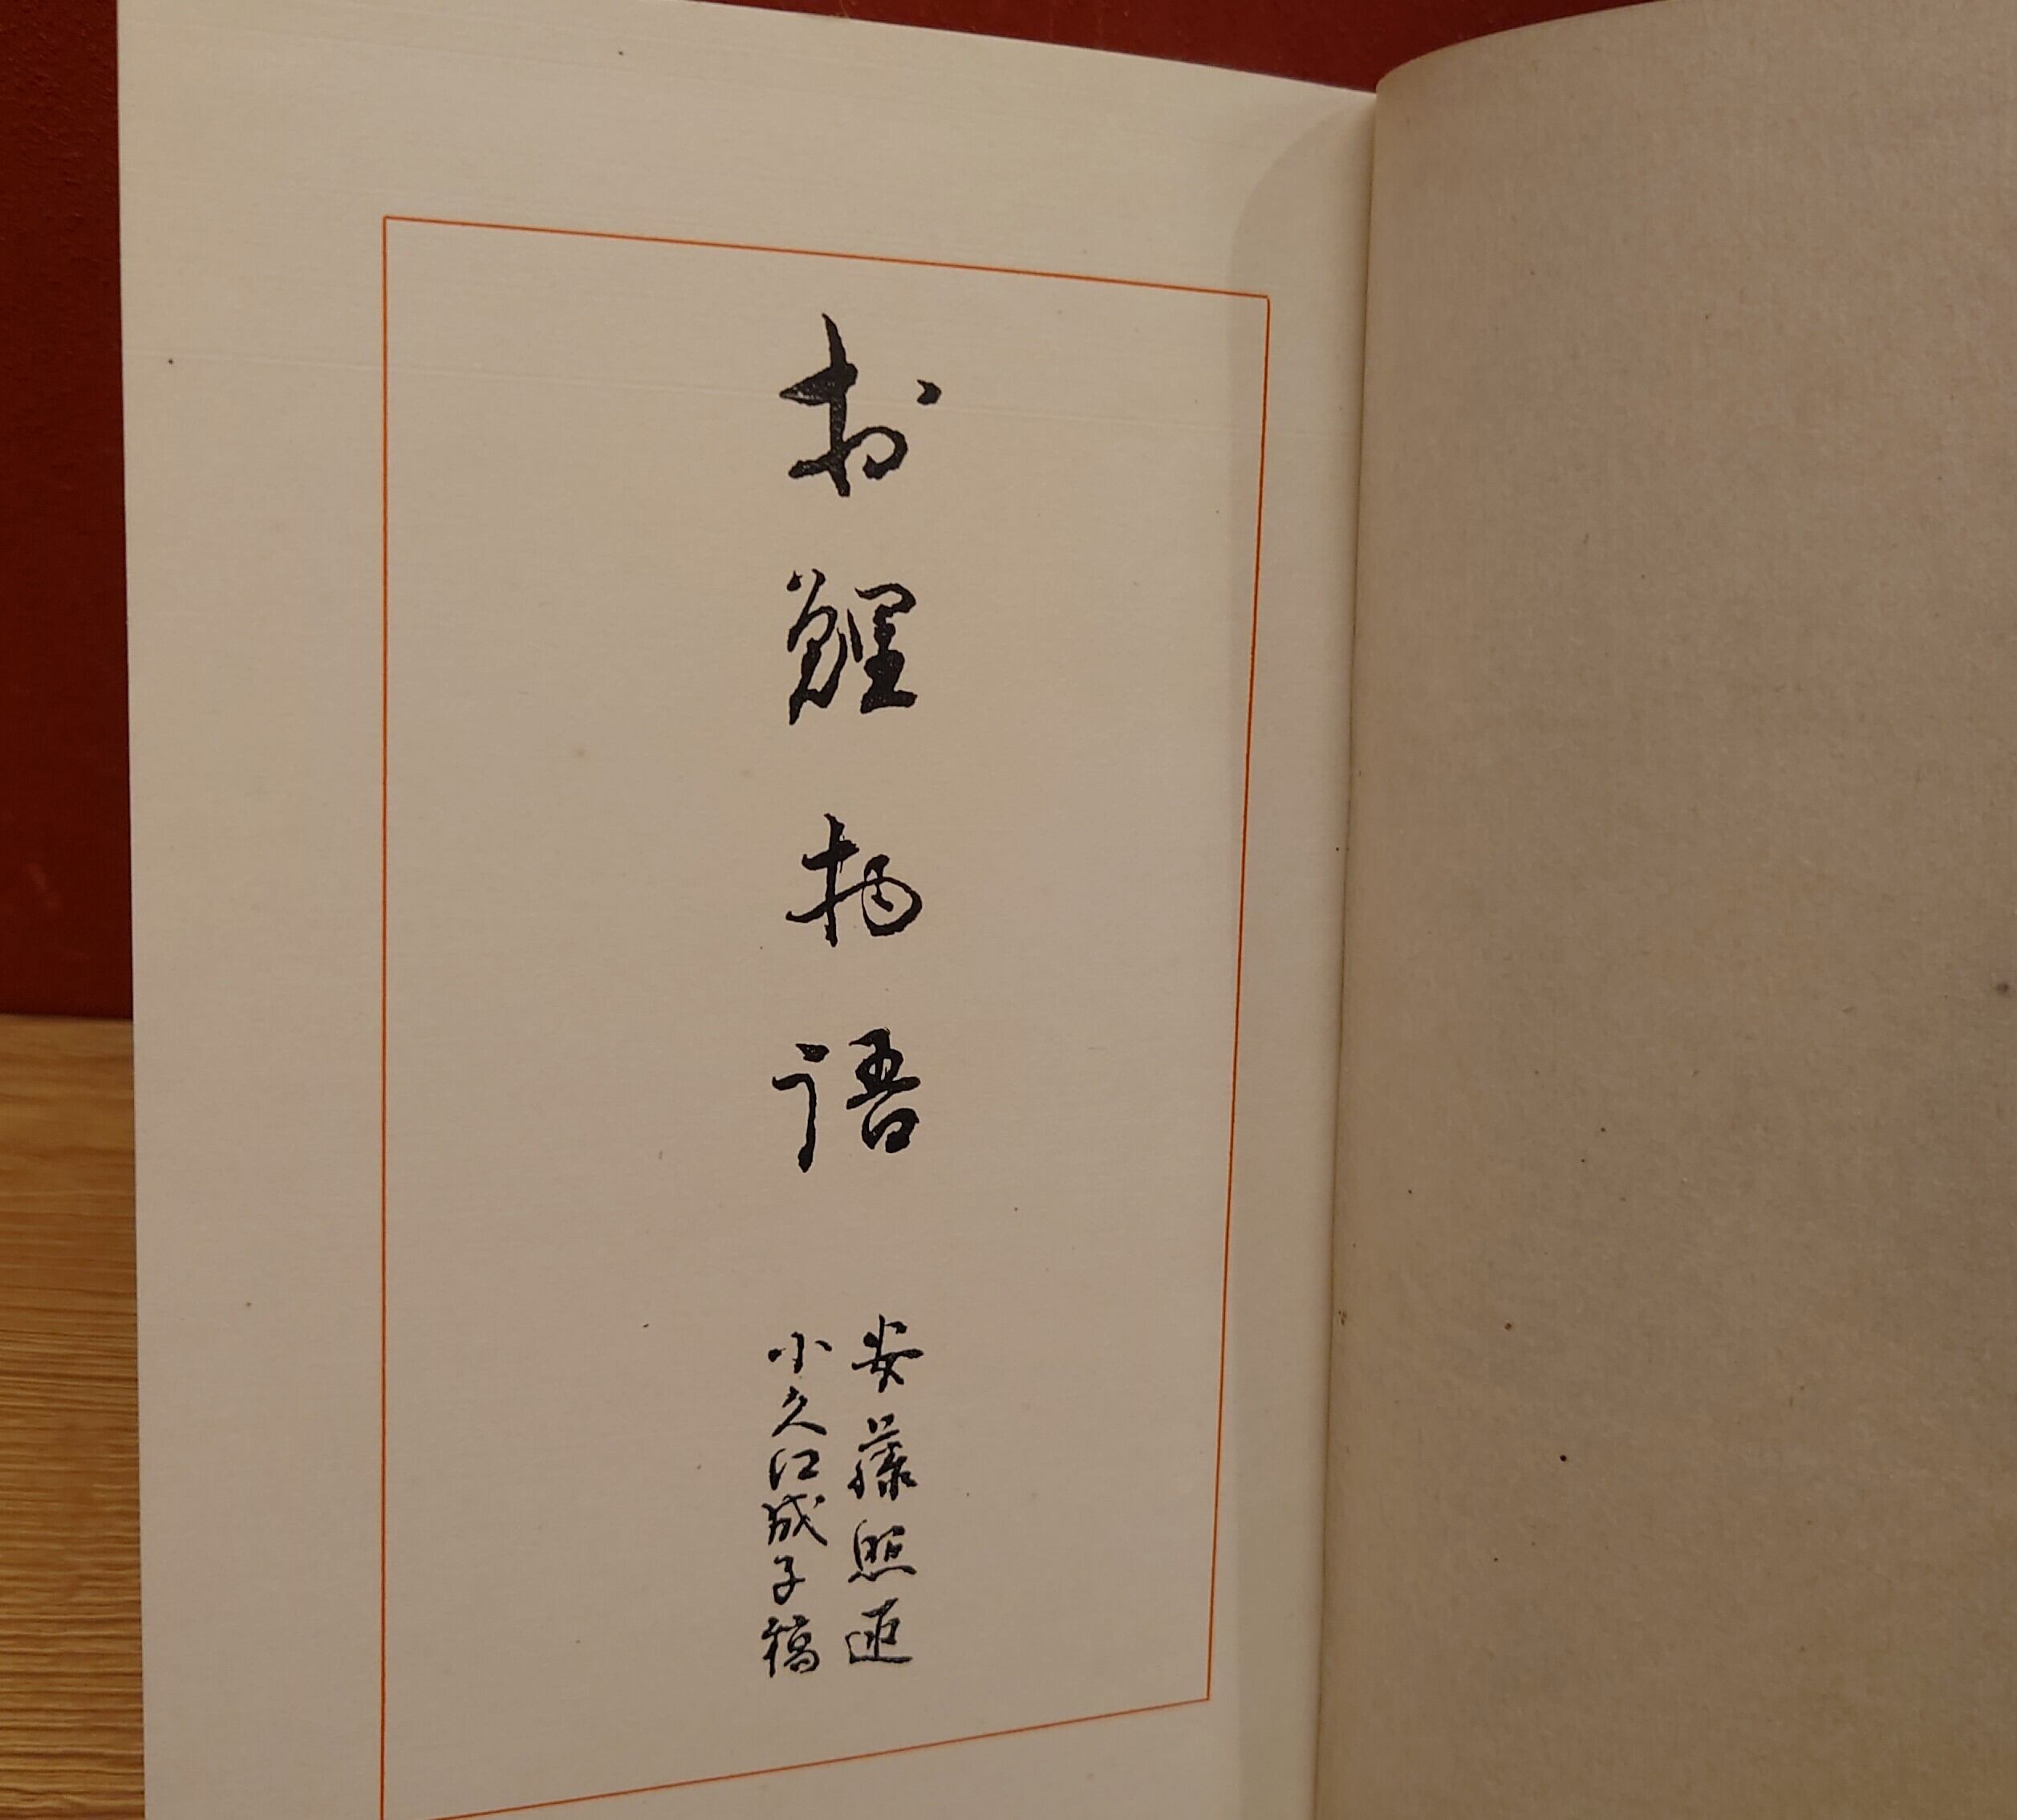 お鯉物語
安藤照述
小久江成子稿